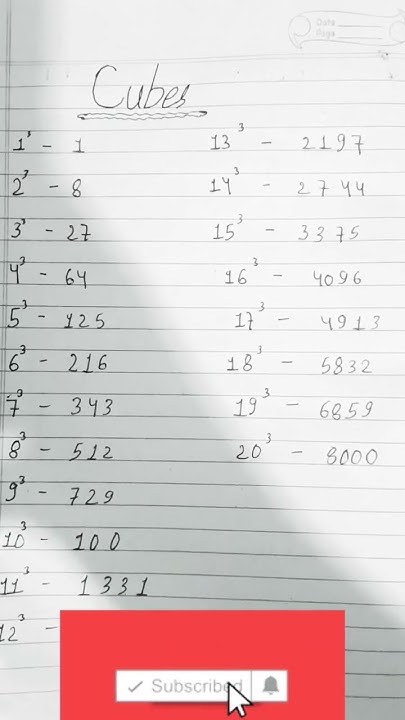 Date
Page
Cubes
1³ - 1
2³ - 8
3³ - 27
4³ - 64
5³ - 125
6³ - 216
7³ - 343
8³ - 512
9³ - 729
10³ - 100
11³ - 1331
12³ -
13³ - 2197
14³ - 2744
15³ - 3375
16³ - 4096
17³ - 4913
18³ - 5832
19³ - 6859
20³ - 8000
Subscribed